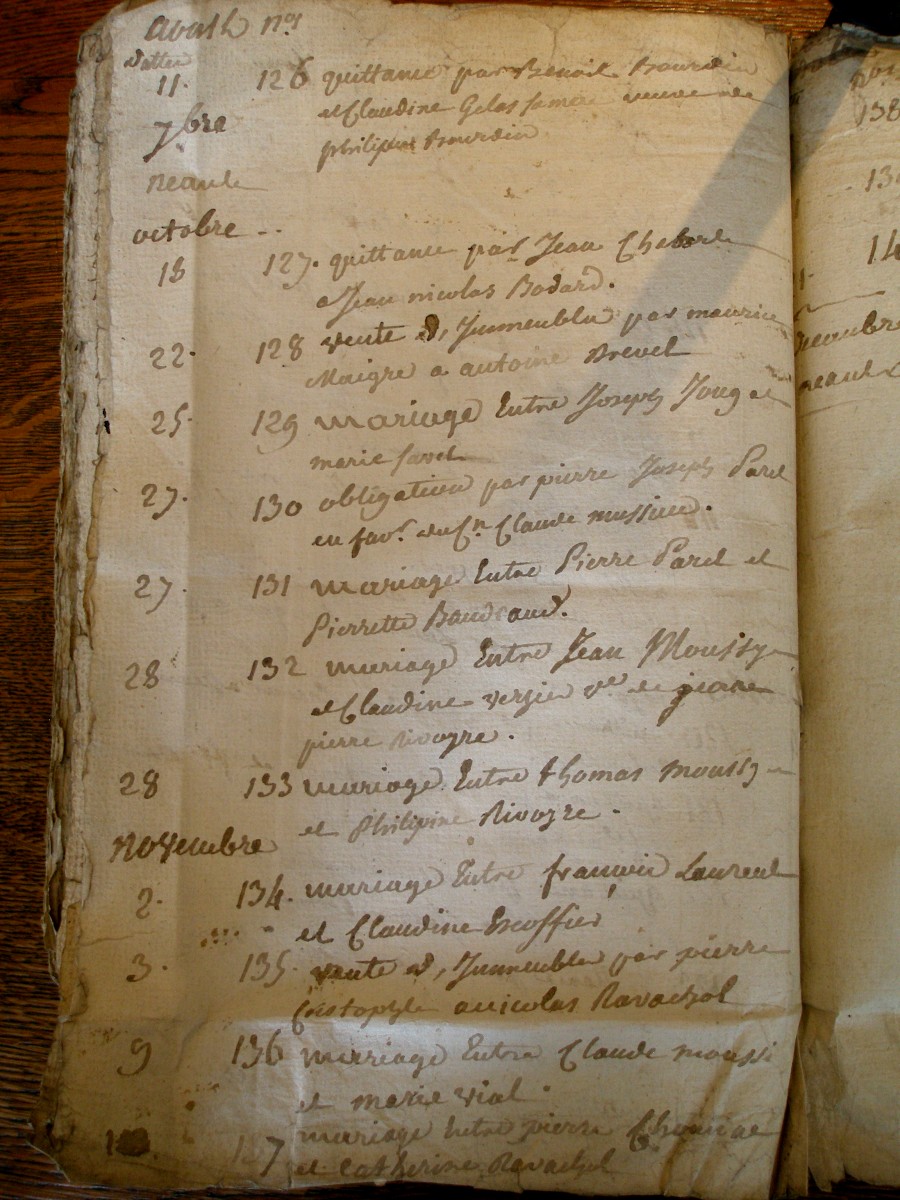 aoust nos
dattes
11. 126 quittance par Benoit Bourdin
et Claudine Gelas femme veuve de
philipe Bourdin
7bre
neant
octobre
18 127. quittance par Jean Chebert
a Jean nicolas Bodard.
22. 128 vente d'Immeubles par maurice
Maigre a antoine Brevet
25. 129 mariage Entre Joseph Joug et
marie favel
27. 130 obligation par pierre Joseph Parel
en favr. du Cn Claude mussieu.
27. 131 mariage Entre Pierre Parel et
Pierrette Baudraud.
28 132 mariage Entre Jean Moussy
et Claudine versier ve de jeane
pierre Rivoyre.
28 133 mariage Entre thomas moussy
et Philipine Rivoyre.
novembre
2. 134. mariage Entre francois Laurent
et Claudine Escoffier
3. 135. vente d'Immeubles par pierre
a nicolas Ravachol
9 136 mariage Entre Claude moussi
et marie vial.
137 mariage Entre pierre
et Catherine Ravachol
138
14
neant